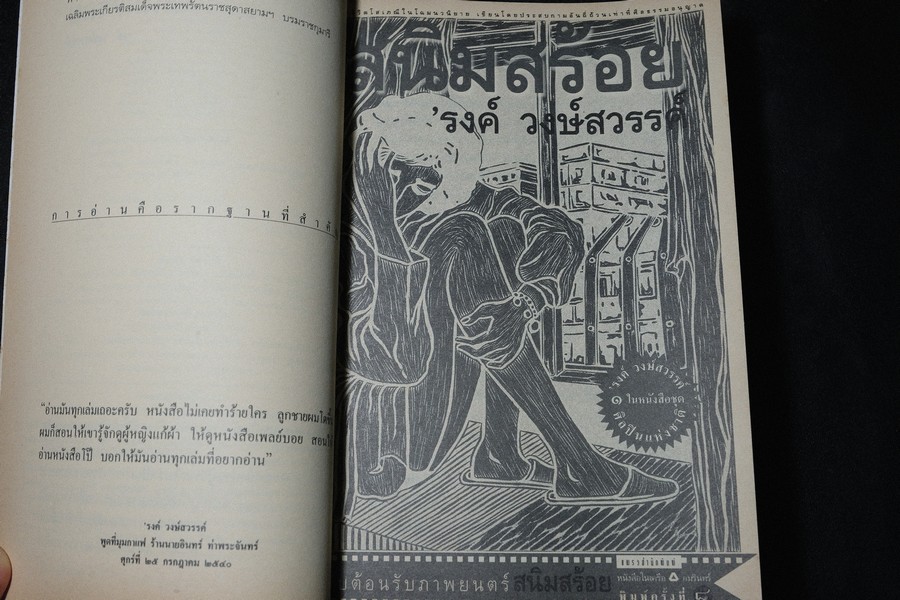 เฉลิมพระเกียรติสมเด็จพระเทพรัตนราชสุดาสยามฯ บรมราชกุมารี
การอ่านคือรากฐานที่สำคั
“อ่านมันทุกเล่มเถอะครับ หนังสือไม่เคยทำร้ายใคร ลูกชายผมโตขึ้น
ผมก็สอนให้เขารู้จักดูผู้หญิงแก้ผ้า ให้ดูหนังสือเพลย์บอย สอนให้
อ่านหนังสือโป๊ บอกให้มันอ่านทุกเล่มที่อยากอ่าน”
’รงค์ วงษ์สวรรค์
พูดที่มุมกาแฟ ร้านนายอินทร์ ท่าพระจันทร์
ศุกร์ที่ ๒๕ กรกฎาคม ๒๕๔๐
สนิมสร้อย
’รงค์ วงษ์สวรรค์
’รงค์ วงษ์สวรรค์
๑ ในหนังสือชุด
ศิลปินแห่งชาติ
ต้อนรับภาพยนตร์สนิมสร้อย
หนังสือในเครือ
พิมพ์ครั้งที่ ๘